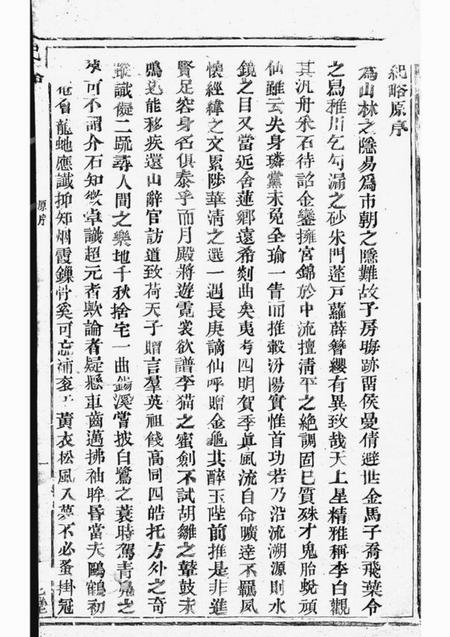 紀略原序
為山林之隱易為市朝之隱難故子房晦跡丽侯曼倩避世金馬子喬飛葉令
之舄稚川乞勾漏之砂朱門蓬戶蘿薜簪纓有異致哉天上星精雅稱李白觀
其汎舟釆石待詔金鑾擁宮錦於中流擅淸平之絕調固已質殊才鬼胎蛻頑
仙雖云失身璘黨未免全瑜一眚而推轂汾陽實惟首功若乃沿流溯源則水
鏡之目又當远舍蓮鄉遠希剡曲矣夷考四明賀季真風流自命曠達不羈夙
懷經緯之文累陟華淸之選一遇長庚謫仙呼贈金龜共醉玉陛前推是非進
賢足容身名俱泰乎而月殿將遊霓裳欲譜李猫之蜜劍不試胡雛之鼙鼓未
鳴乞能移疾還山辭官訪道致荷天子贈言羣英祖餞高同四皓托方外之奇
蹤識儗二疏尋人間之樂地千秋捨宅一曲鏡溪嘗披白鷺之蓑時駕靑鳧之
可不謂介石知微卓識超元者歟論者疑懸車齒邁拂袖眸昏當大鷗鶴初
龍蛇應讖抑知烟霞鍊骨奚可忘浦袞 黃衣松風入夢不必蚤掛冠
原序